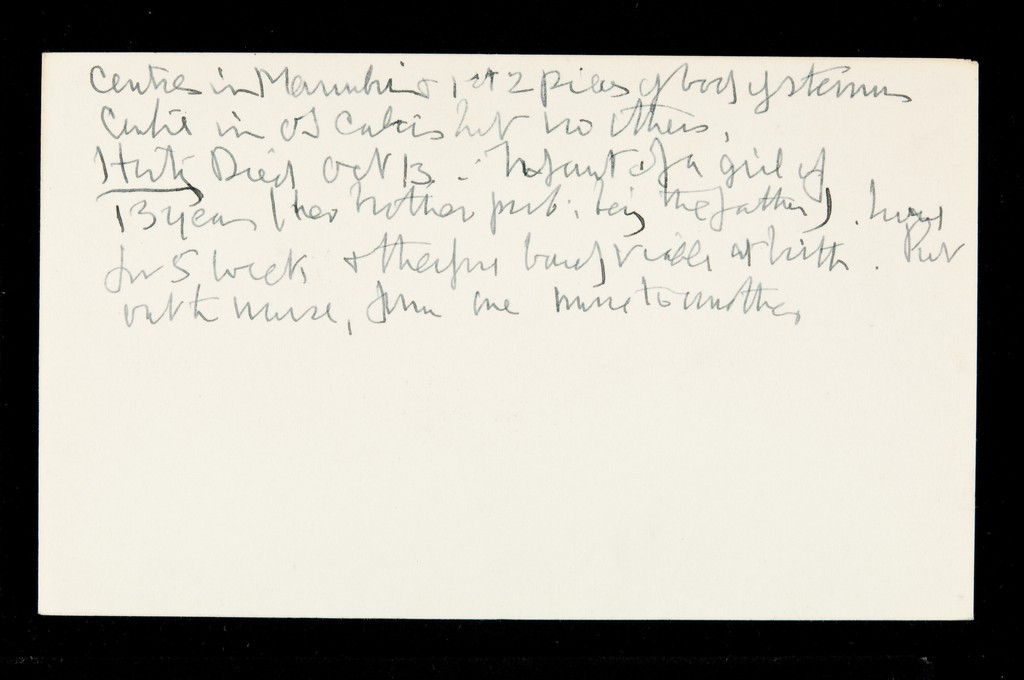 Centres in Manubrium & 1st 2 pieces of body of sternum
Centre in os calcis but no others.
History Died Oct 13. Infant of a girl of
13 years (her brother prob. being the father). Lived
for 5 weeks & therefore barely viable at birth. Put
out to nurse, from one nurse to another